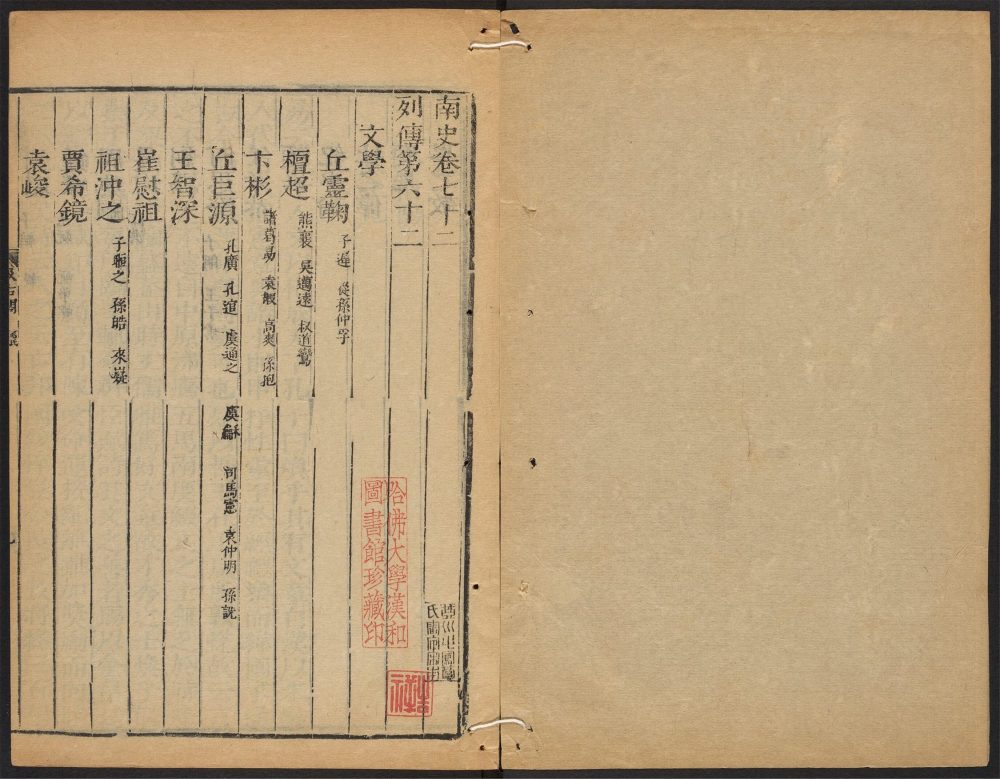 南史卷七十二
列傳第六十二
文學
丘靈鞠 子遲 從孫仲孚
檀超 熊襄 吳邁遠 叔道鸞
卞彬 諸葛勗 袁嘏 高爽 孫抱
丘巨源 孔廣 孔逭 虞通之 虞龢 司馬憲 袁仲明 孫詵
王智深
崔慰祖
祖沖之 子暅之 孫皓 來嶷
賈希鏡
袁峻
哈佛大學漢和
圖書館珍藏印